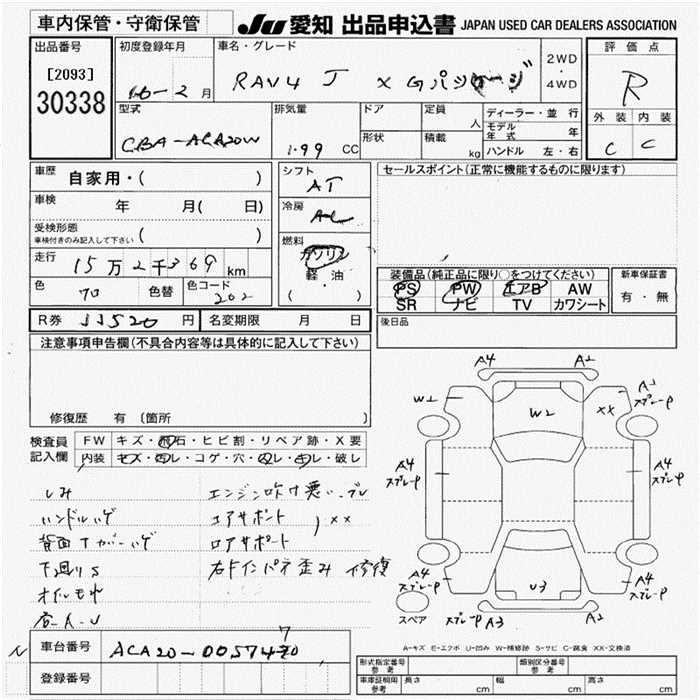 車内保管・守衛保管
JU 愛知 出品申込書 JAPAN USED CAR DEALERS ASSOCIATION
出品番号
[2093]
30338
初度登録年月
16-2月
車名・グレード
RAV4 J X Gパッケージ
2WD
・
4WD
評価点
R
外装 内装
C C
型式
CBA-ACA20W
排気量
1.99 CC
ドア
形状
定員 人
積載 kg
ディーラー・並行
モデル年式 年
ハンドル 左・右
車歴
自家用・( )
車検 年 月( 日)
受検形態
車検付きのみ記入して下さい ( )
走行 15万2千369km
色 70 色替 色コード 202
シフト
AT
冷房
AC
燃料
ガソリン
軽・油
( )
セールスポイント(正常に機能するものに限ります)
装備品(純正品に限り○をつけてください)
PS PW エアB AW
SR ナビ TV カワシート
新車保証書
有・無
後日品
R券 11520円 名変期限 月 日
注意事項申告欄(不具合内容等は具体的に記入して下さい)
修復歴 有 〔箇所
検査員
記入欄
FW キズ・飛石・ヒビ割・リペア跡・X要
内装 キズ・凹レ・コゲ・穴・凹レ・キレ・破レ
シミ
ハンドルハゲ
背面Tカバーハゲ
下廻りS
オイルもれ
エンジン吹け悪い、ブレ
コアサポート
ロアサポート
, XX
右Fインパネ歪み 修復
A4 A2
W1
A1
スプレーP
W2
XX
A4
スプレーP
A4
スプレーP
A4
スプレーP
U3
A4
スプレーP
スペア
スプレーP A3
A2
A-キズ E-エクボ U-凹み W-補修跡 S-サビ C-腐食 XX-交換済
車台番号
7
ACA20-0057470
N
登録番号
形式指定番号
参考
類別区分番号
参考
車庫証明用
参考
長さ cm
幅 cm
高さ cm